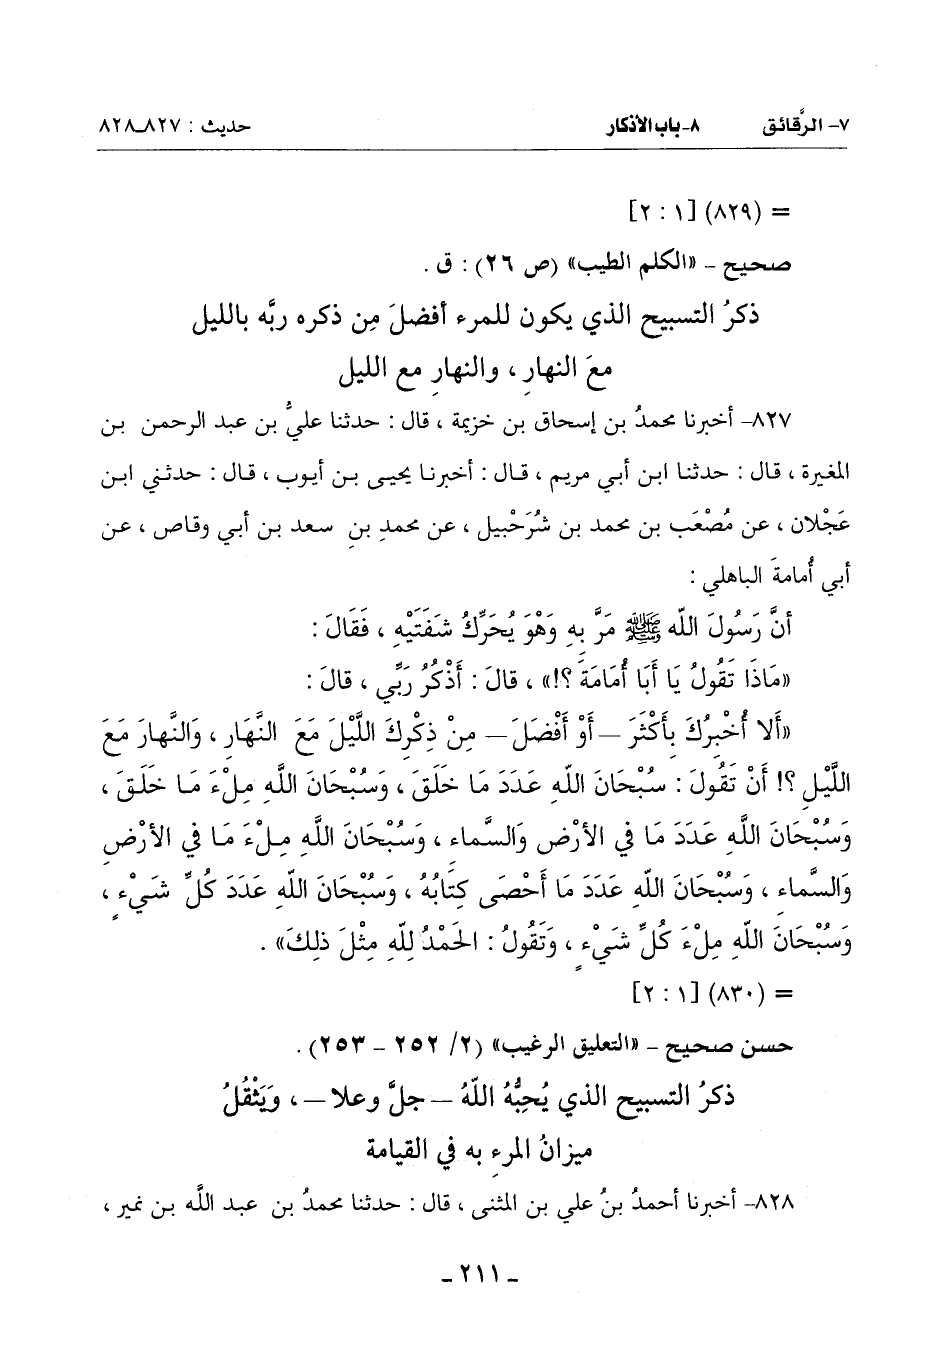 ٧- الرَّقائق ٨- باب الأذكار حديث : ٨٢٧ـ٨٢٨
= (٨٢٩) [١ : ٢]
صحيح - «الكلم الطيب» (ص ٢٦) : ق .
ذكرُ التسبيح الذي يكون للمرء أفضلَ مِن ذكره ربَّه بالليل
معَ النهارِ ، والنهارِ مع الليل
٨٢٧- أخبرنا محمدُ بن إسحاق بن خزيمة ، قال : حدثنا عليُّ بن عبد الرحمن بن
المغيرة ، قال : حدثنا ابن أبي مريم ، قال : أخبرنا يحيى بن أيوب ، قال : حدثني ابن
عَجْلان ، عن مُصْعَب بن محمد بن شُرَحْبيل ، عن محمدِ بنِ سعد بن أبي وقاص ، عن
أبي أُمامةَ الباهلي :
أنَّ رَسُولَ اللَّه ﷺ مَرَّ بِهِ وَهْوَ يُحَرِّكُ شَفَتَيْهِ ، فَقَالَ :
«مَاذَا تَقُولُ يَا أَبَا أُمَامَةَ ؟!» ، قالَ : أَذْكُرُ رَبِّي ، قالَ :
«أَلا أُخْبِرُكَ بِأَكْثَرَ – أَوْ أَفْضَلَ – مِنْ ذِكْرِكَ اللَّيْلَ مَعَ النَّهَارِ ، وَالنَّهارَ مَعَ
اللَّيْلِ ؟! أَنْ تَقُولَ : سُبْحَانَ اللَّهِ عَدَدَ مَا خَلَقَ ، وَسُبْحَانَ اللَّهِ مِلْءَ مَا خَلَقَ ،
وَسُبْحَانَ اللَّهِ عَدَدَ مَا في الأرْضِ وَالسَّماءِ ، وَسُبْحَانَ اللَّهِ مِلْءَ مَا في الأرْضِ
وَالسَّماءِ ، وَسُبْحَانَ اللَّهِ عَدَدَ مَا أَحْصَى كِتَابُهُ ، وَسُبْحَانَ اللَّهِ عَدَدَ كُلِّ شَيْءٍ ،
وَسُبْحَانَ اللَّهِ مِلْءَ كُلِّ شَيْءٍ ، وَتَقُولُ : الحَمْدُ لِلَّهِ مِثْلَ ذلِكَ» .
= (٨٣٠) [١ : ٢]
حسن صحيح - «التعليق الرغيب» (٢/ ٢٥٢ - ٢٥٣) .
ذكرُ التسبيح الذي يُحِبُّهُ اللَّهُ – جلَّ وعلا – ، وَيَثْقُلُ
ميزانُ المرءِ به في القيامة
٨٢٨- أخبرنا أحمدُ بنُ علي بن المثنى ، قال : حدثنا محمدُ بن عبد اللَّه بن نمير ،
- ٢١١ -